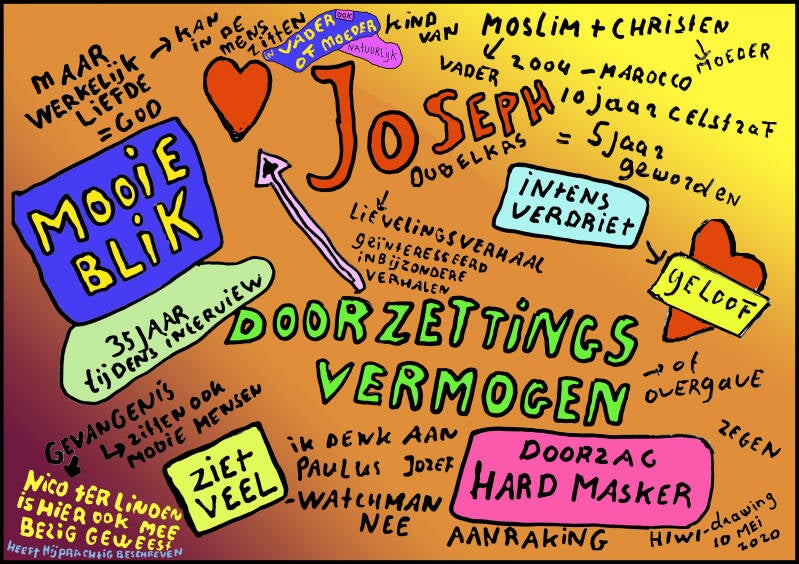 MAAR
WERKELIJK
LIEFDE
= GOD
→ KAN
IN DE
MENS
ZITTEN
OOK
IN VADER
OF MOEDER
NATUURLIJK
KIND
VAN
MOSLIM + CHRISTEN
VADER
MOEDER
JOSEPH
OUBELKAS
2004 - MAROCCO
10 jaar CELSTRAF
= 5 jaar
geworden
MOOIE
BLIK
35 JAAR
tijdens interview
LIEVELINGSVERHAAL
geïnteresseerd
in bijzondere
verhalen
INTENS
VERDRIET
GELOOF
DOORZETTINGS
VERMOGEN
→ of
OVERGAVE
GEVANGENIS
zitten ook
mooie mensen
NICO TER LINDEN
IS HIER OOK MEE
BEZIG GEWEEST
HEEFT HIJ PRACHTIG BESCHREVEN
ZIET
VEEL
IK DENK AAN
PAULUS JOZEF
- WATCHMAN
NEE
DOORZAG
HARD MASKER
AANRAKING
ZEGEN
HIWI-drawing
10 MEI
2020